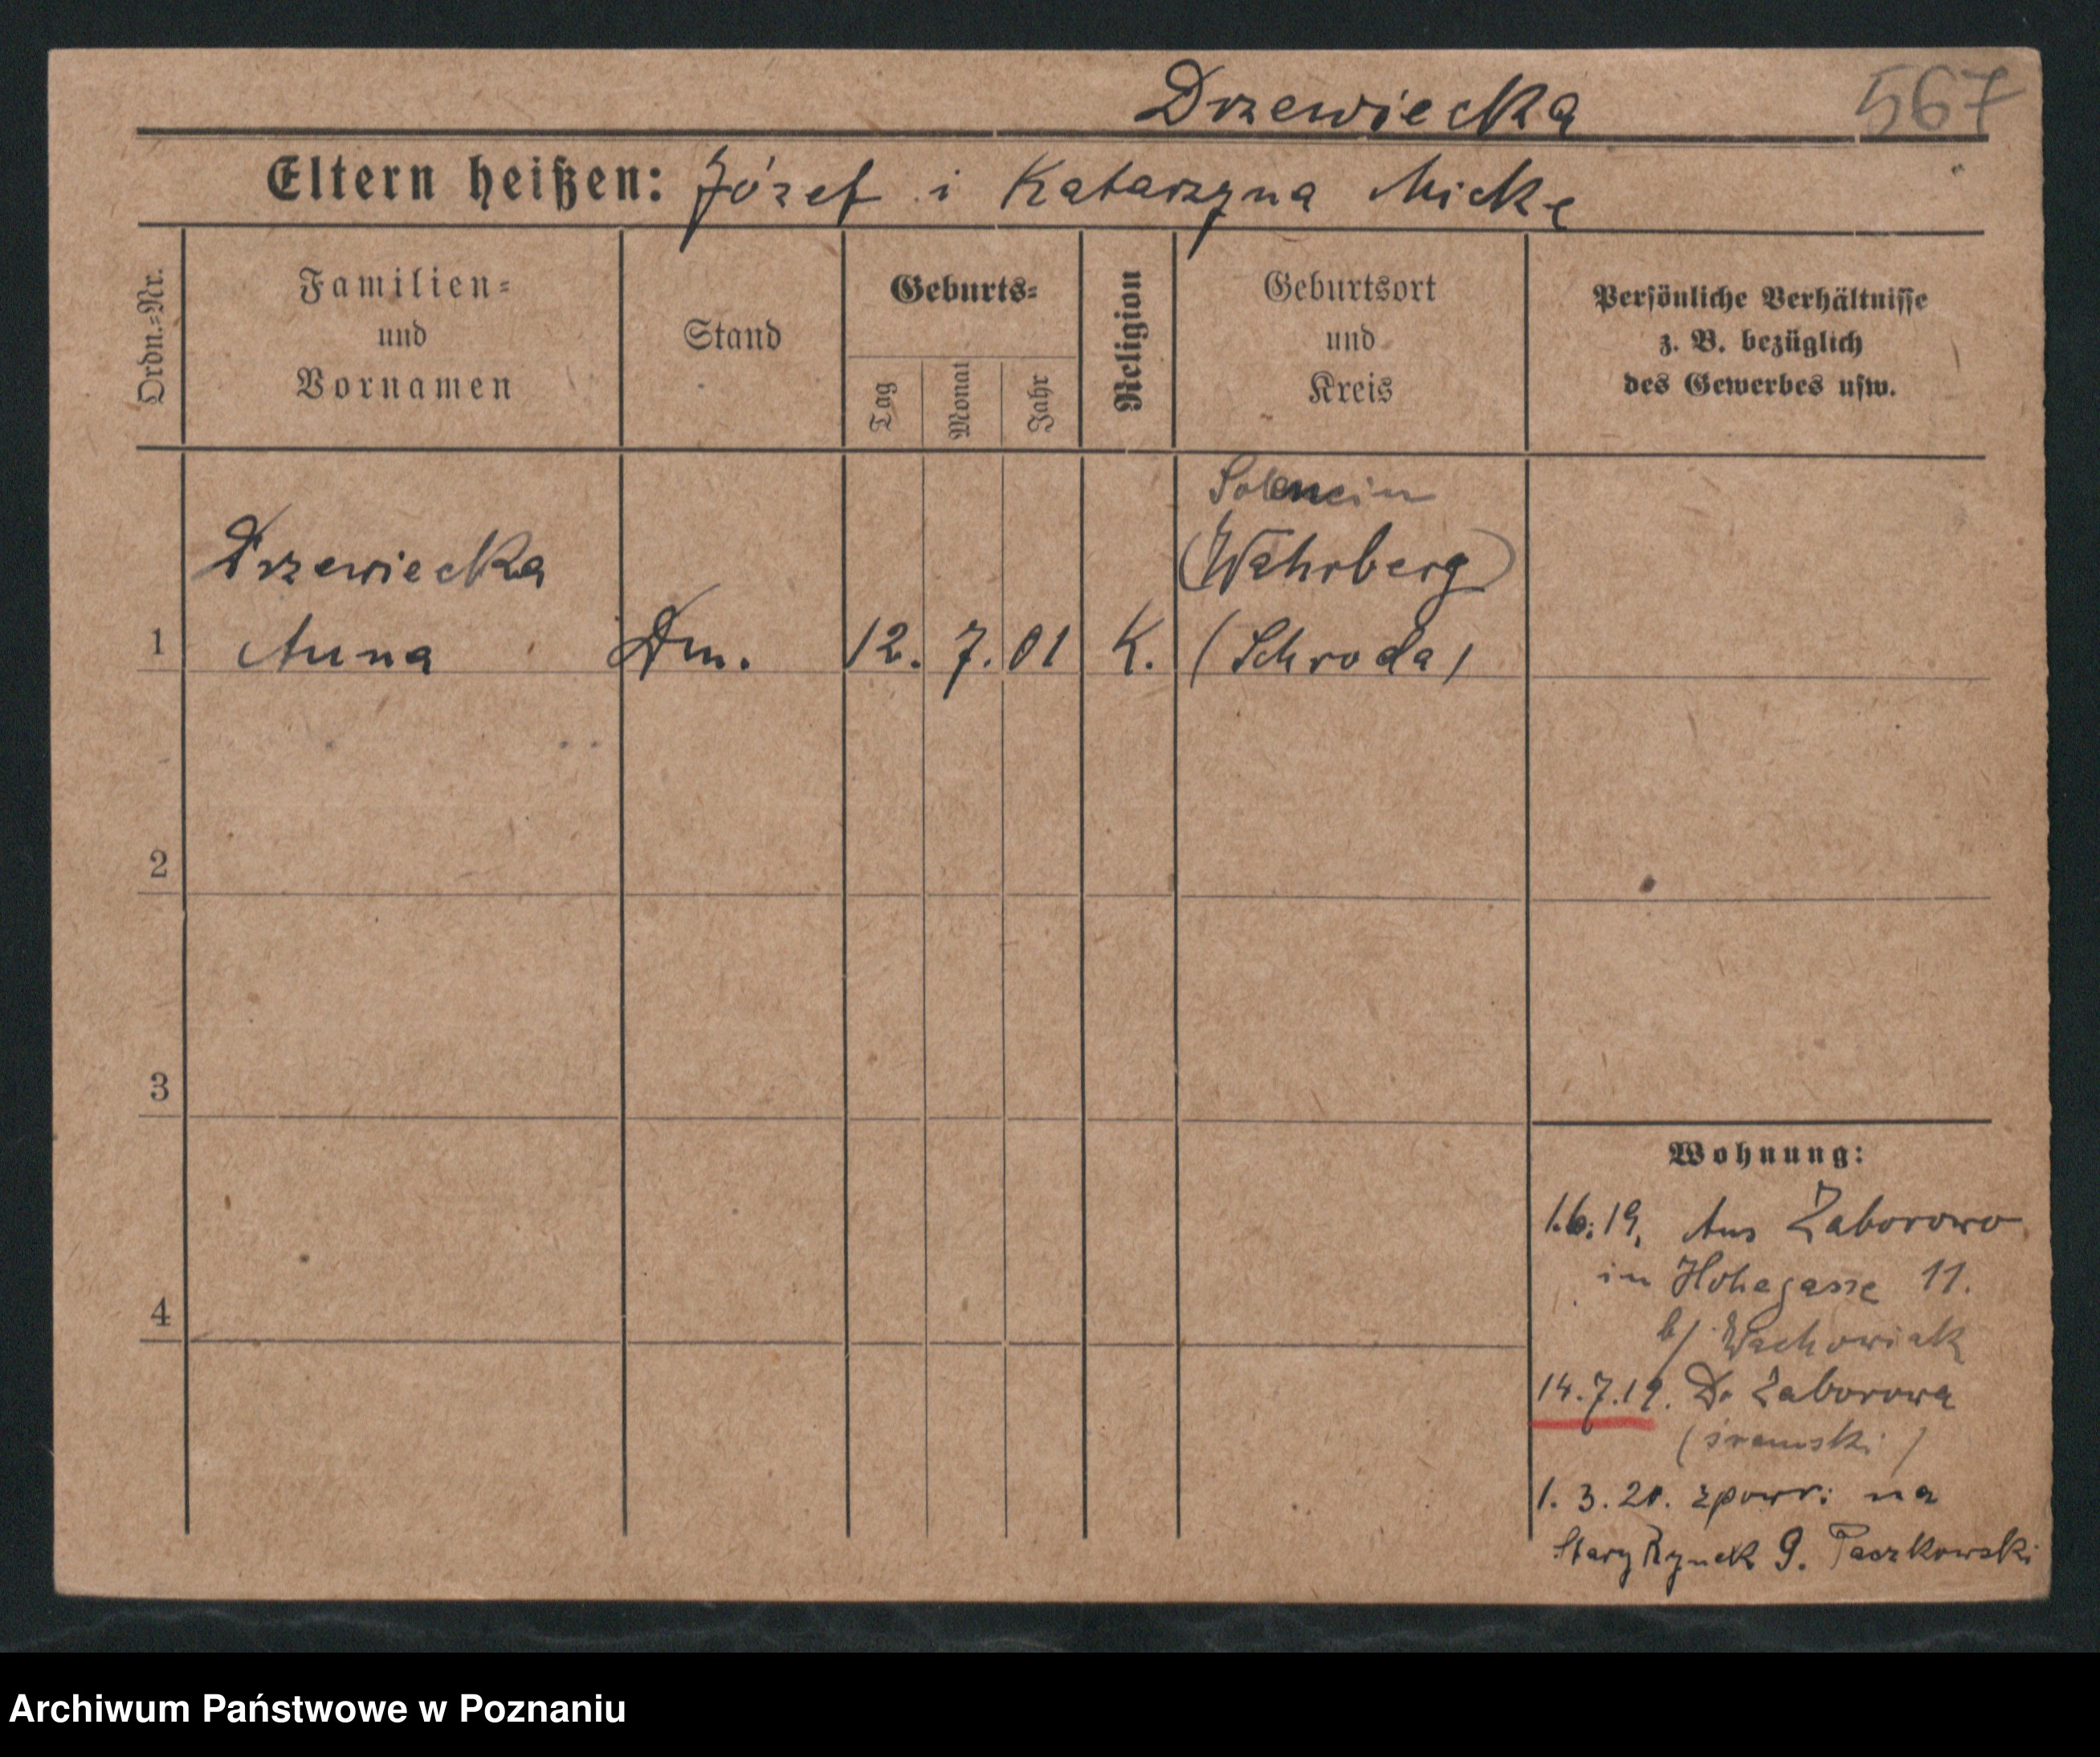 Drzewiecka
567
Eltern heißen: Józef i Katarzyna Micke
Ordn.=Nr.
Familien=
und
Vornamen
Stand
Geburts=
Tag
Monat
Jahr
Religion
Geburtsort
und
Kreis
Persönliche Verhältnisse
z. B. bezüglich
des Gewerbes usw.
(Wahrberg)
Drzewiecka
1 Anna Dm. 12. 7. 01 K. (Schroda)
2
3
4
Wohnung:
1.6.19. Aus Zaborowo
in Hohegasse 11.
b/ Wachowiak
14.7.19. Do Zaborowa
(śremski)
1. 3. 20. zpowr. na
Stary Rynek 9. Paczkowski
Archiwum Państwowe w Poznaniu